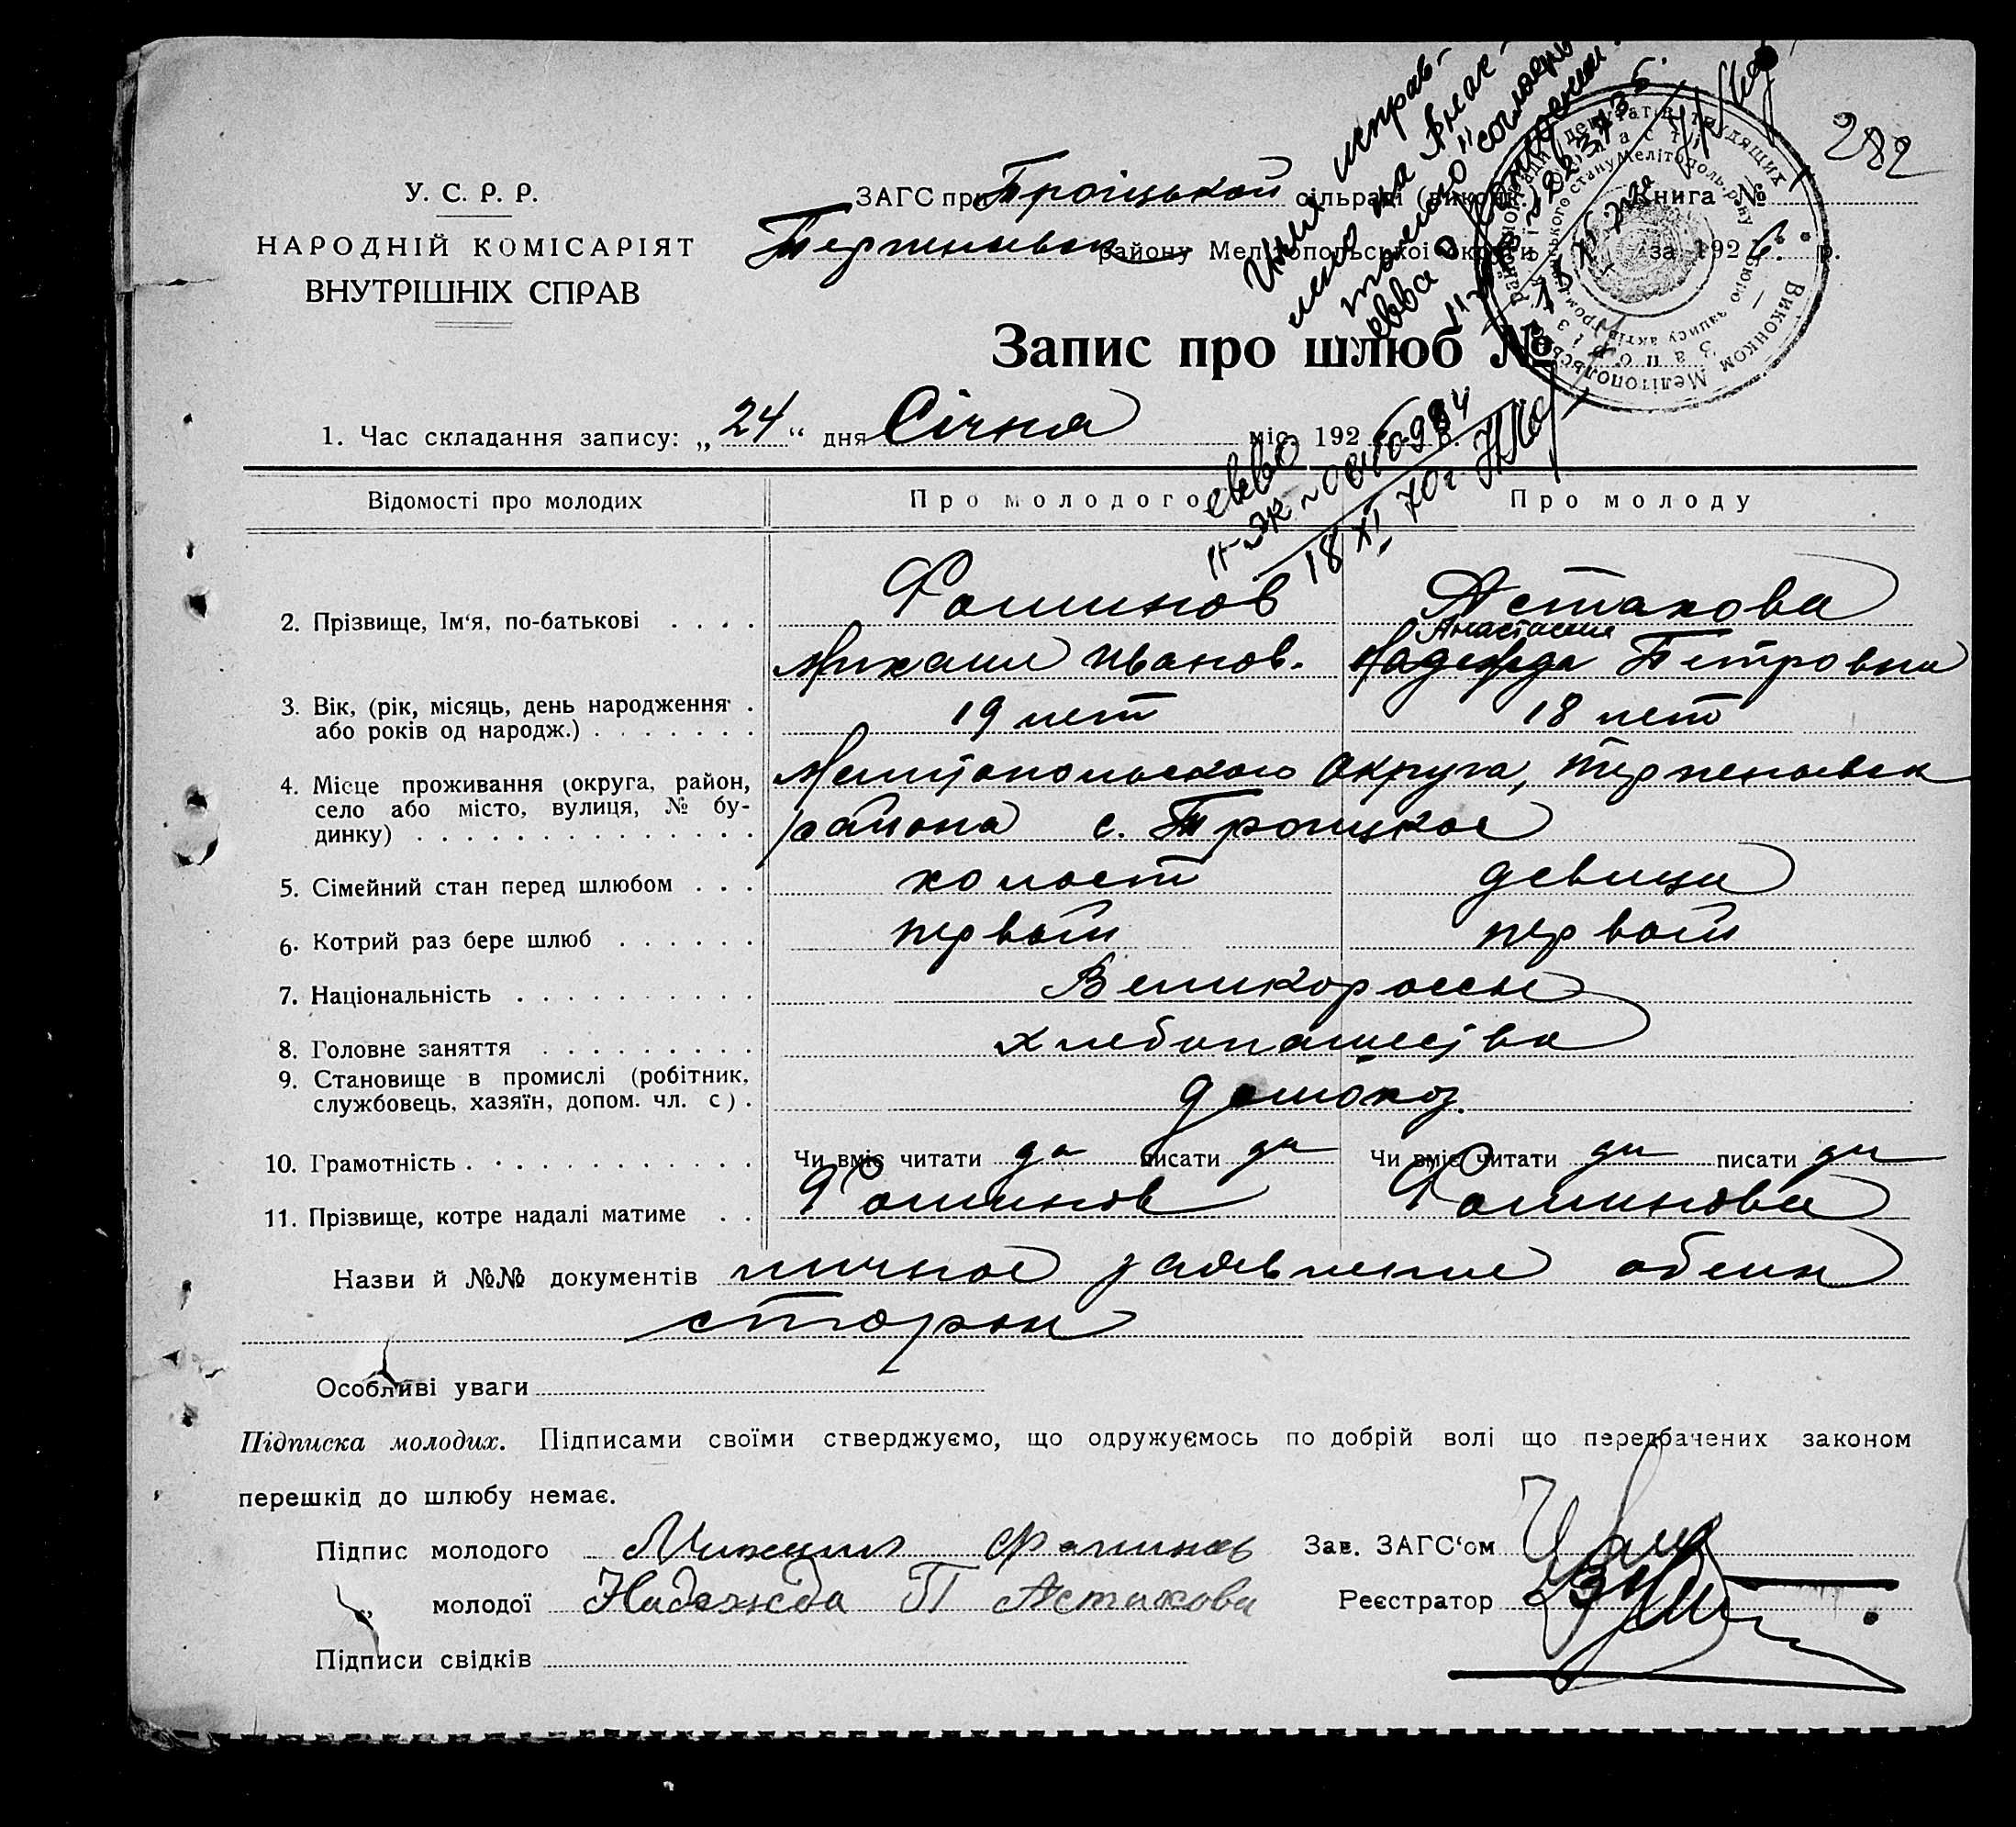 282
У. С. Р. Р.
НАРОДНІЙ КОМІСАРІЯТ
ВНУТРІШНІХ СПРАВ
ЗАГС при Троіцькой сільраді (виконк. Книга №
району Мелітопольської округи за 1926 р.
Имя исправ-
лено на Анас-
Запис про шлюб №
1. Час складання запису: „24“ дня Січня міс. 192
18 XI 70 г.
Відомості про молодих Про молодого Про молоду
2. Прізвище, Ім‘я, по-батькові . . . . Фоминов Астахова
Анастасия
Михаил Иванов. Надежда Петровна
3. Вік, (рік, місяць, день народження . 19 лет 18 лет
або років од народж.) . . . . . . .
4. Місце проживання (округа, район, Мелитопольского Округа,
село або місто, вулиця, № бу- района с. Троицкое
динку) . . . . . . . . . . . . . .
5. Сімейний стан перед шлюбом . . . холост девица
6. Котрий раз бере шлюб . . . . . . первый первый
7. Національність . . . . . . . . . . Великороссы
8. Головне заняття . . . . . . . . . хлебопашество
9. Становище в промислі (робітник,
службовець, хазяїн, допом. чл. с) . домохоз.
10. Грамотність . . . . . . . . . . . . Чи вміє читати да писати да Чи вміє читати да писати да
11. Прізвище, котре надалі матиме . . Фоминов Фоминова
Назви й №№ документів личное заявление обеих
сторон
Особливі уваги
Підписка молодих. Підписами своїми стверджуємо, що одружуємось по добрій волі що передбачених законом
перешкід до шлюбу немає.
Підпис молодого Михаил Фоминов Зав. ЗАГС‘ом
„ молодої Надежда П Астахова Реєстратор
Підписи свідків